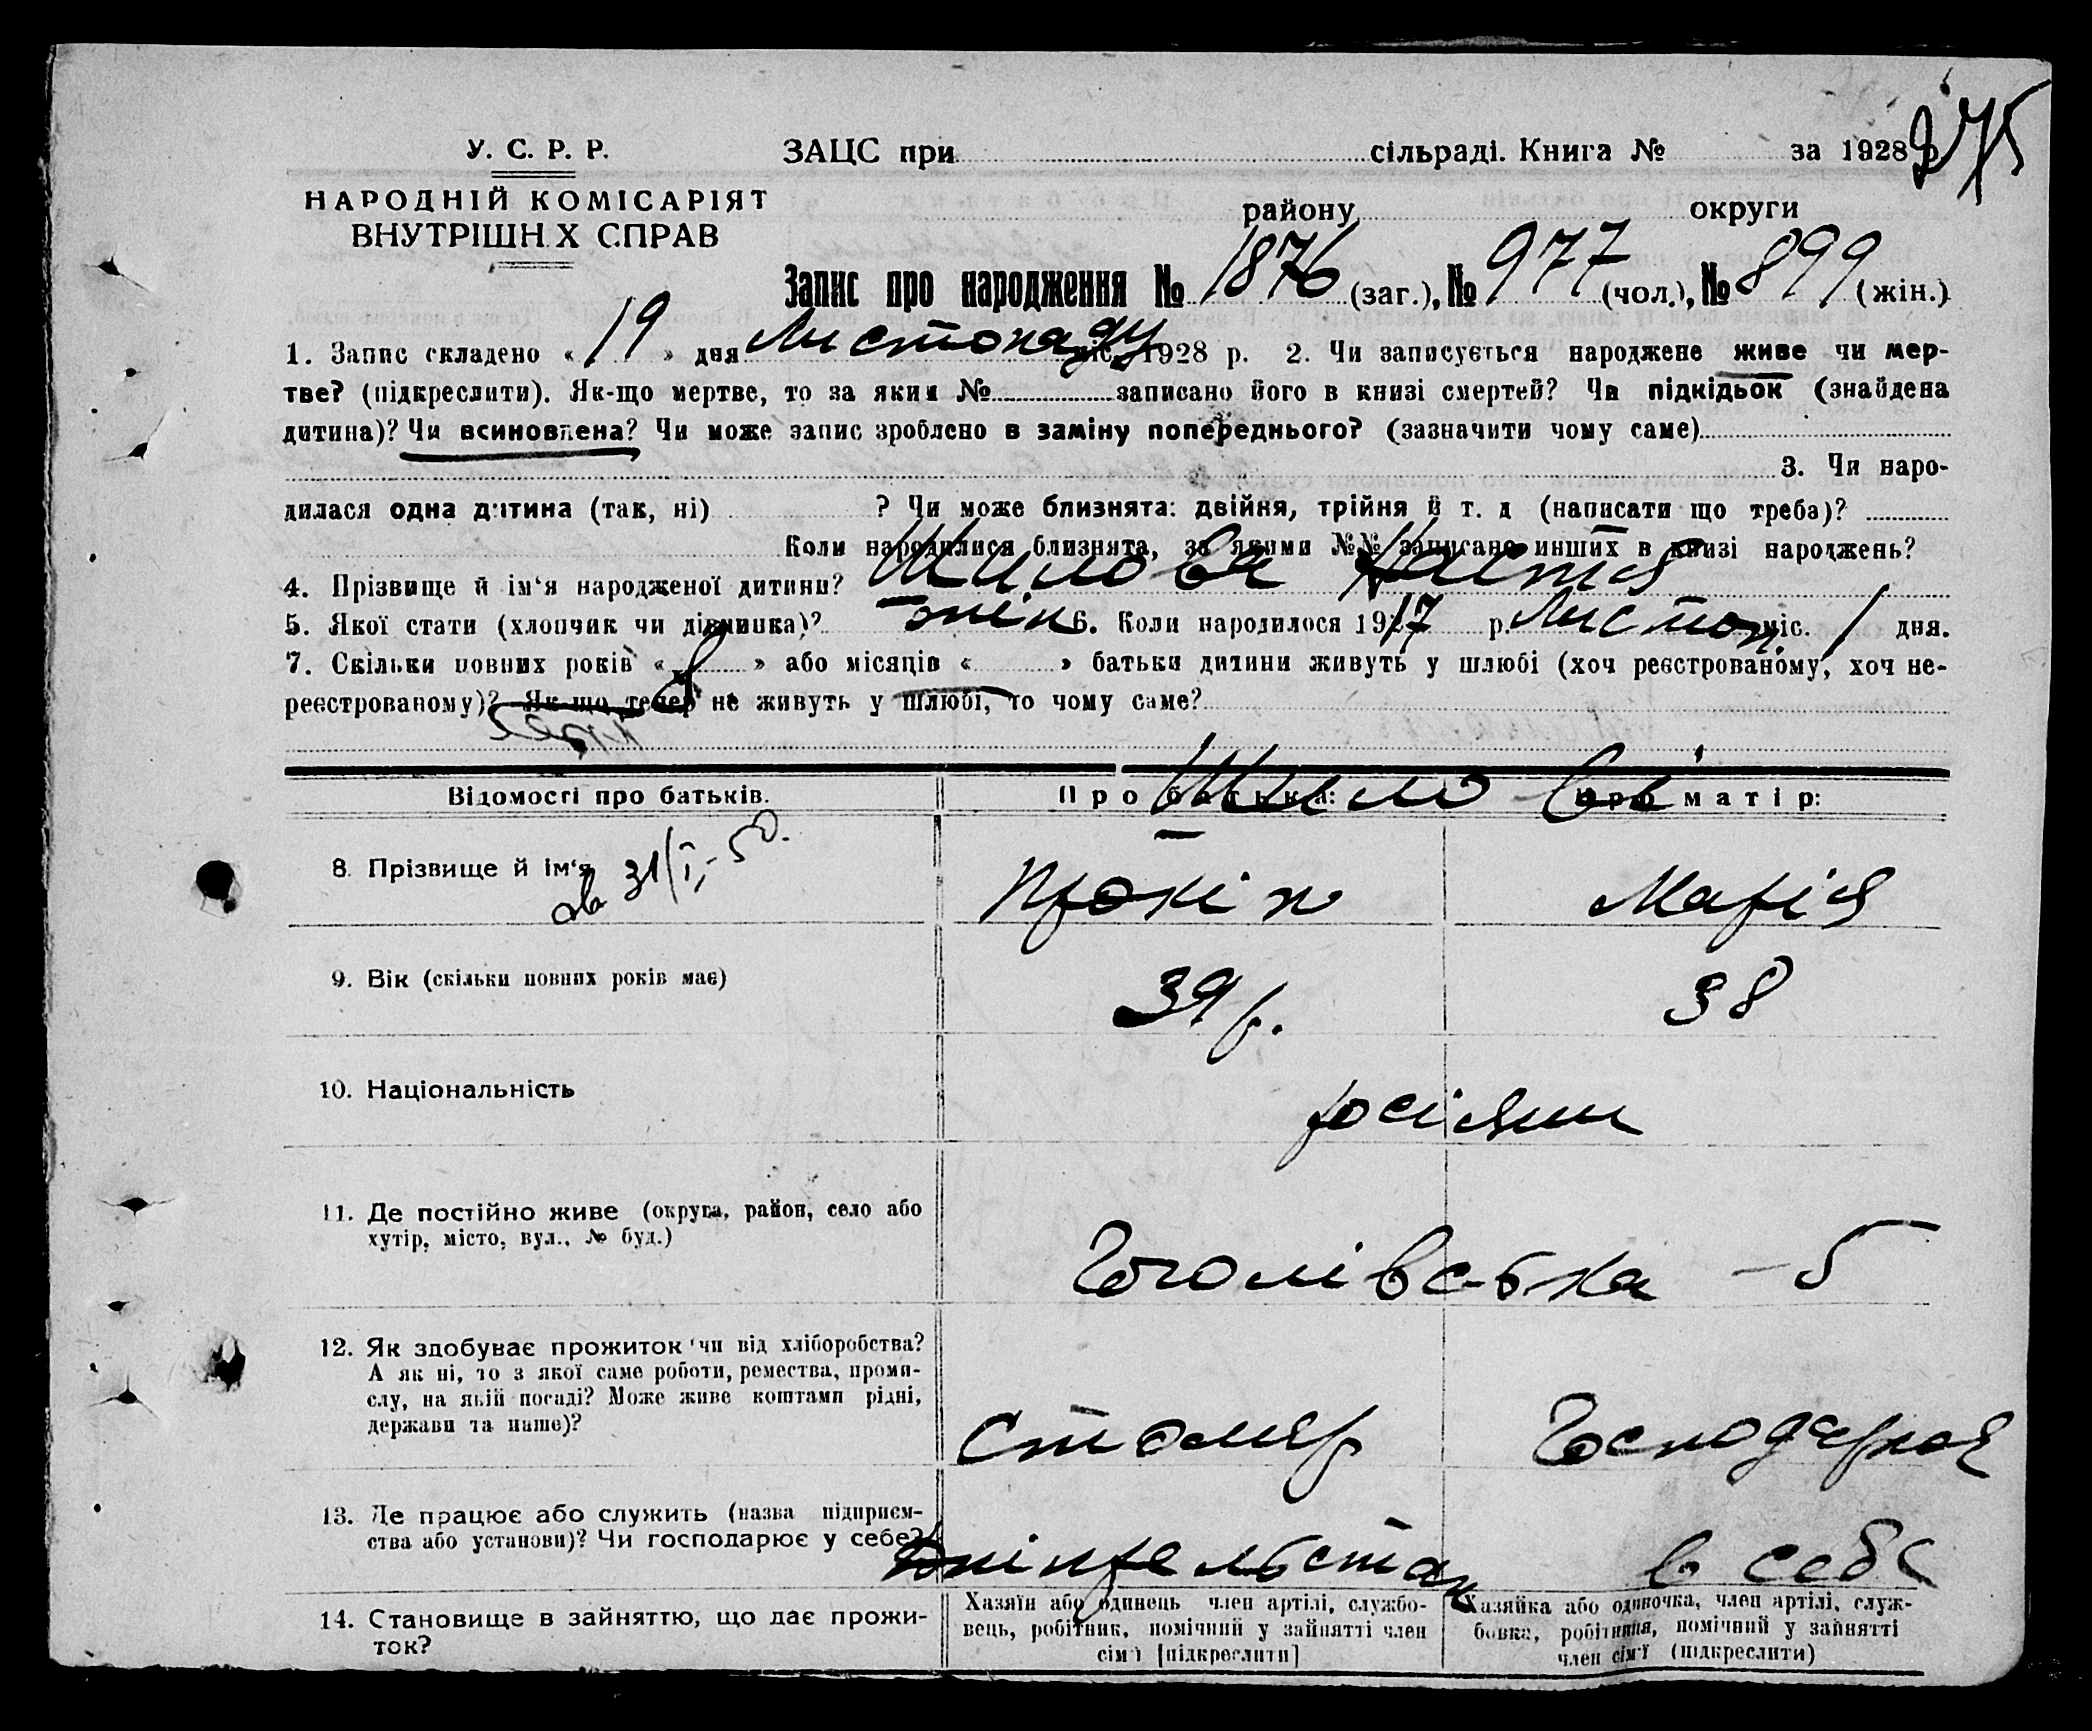 275
У. С. Р. Р.
ЗАЦС при сільраді. Книга № за 1928 р.
НАРОДНІЙ КОМІСАРІЯТ
ВНУТРІШН Х СПРАВ
району округи
Запис про народження № 1876 (заг.), № 977 (чол.), № 899 (жін.)
1. Запис складено « 19 » дня Листопаду міс. 1928 р. 2. Чи записується народжене живе чи мер-
тве? (підкреслити). Як-що мертве, то за яким № записано його в книзі смертей? Чи підкідьок (знайдена
дитина)? Чи всиновлена? Чи може запис зроблено в заміну попереднього? (зазначити чому саме)
3. Чи наро-
дилася одна дитина (так, ні) ? Чи може близнята: двійня, трійня й т. д (написати що треба)?
Коли народилися близнята, за якими №№ записано инших в книзі народжень?
4. Прізвище й ім‘я народженої дитини? Шилова Настя
5. Якої стати (хлопчик чи дівчинка)? жін 6. Коли народилося 1917 р. Листоп. міс. 1 дня.
7. Скільки повних років « 8 » або місяців « » батьки дитини живуть у шлюбі (хоч реєстрованому, хоч не-
реєстрованому)? Як що тепер не живуть у шлюбі, то чому саме?
Відомості про батьків. Про батька: Про матір:
Шилови
8. Прізвище й ім‘я Прокіп Марія
31/I-50.
9. Вік (скільки повних років має) 39 р. 38
10. Національність росіяни
11. Де постійно живе (округа, район, село або
хутір, місто, вул., № буд.) Гоголівська - 5
12. Як здобуває прожиток чи від хліборобства?
А як ні, то з якої саме роботи, ремества, проми-
слу, на якій посаді? Може живе коштами рідні,
держави та инше)? Столяр Господарка
13. Де працює або служить (назва підприєм-
ства або установи)? Чи господарює у себе? в себе
14. Становище в зайняттю, що дає прожи-
ток?
Хазяїн або одинець член артілі, службо-
вець, робітник, помічний у зайнятті член
сім‘ї [підкреслити]
Хазяйка або одиночка, член артілі, служ-
бовка, робітниця, помічний у зайнятті
член сім‘ї (підкреслити)